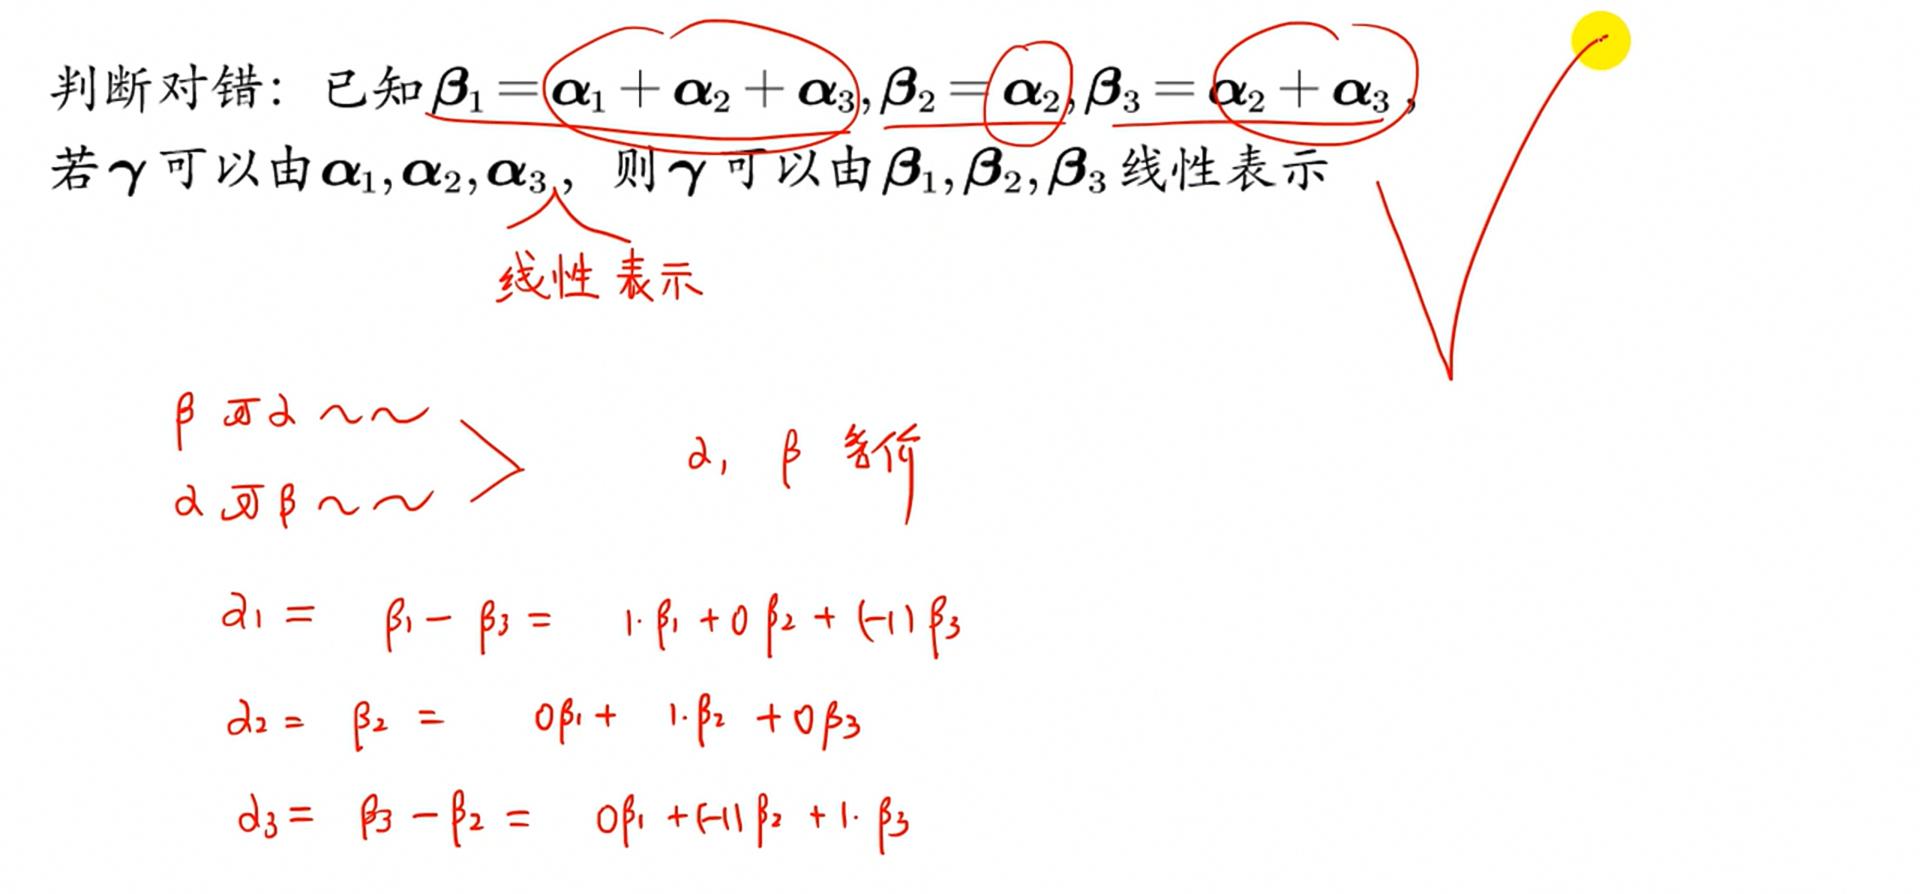 判断对错：已知β₁=α₁+α₂+α₃,β₂=α₂,β₃=α₂+α₃,
若γ可以由α₁,α₂,α₃,，则γ可以由β₁,β₂,β₃线性表示
线性表示
β可α～～
α可β～～
α, β 等价
α₁ = β₁ - β₃ = 1·β₁ + 0β₂ + (-1)β₃
α₂ = β₂ = 0β₁ + 1·β₂ + 0β₃
α₃ = β₃ - β₂ = 0β₁ + (-1)β₂ + 1·β₃